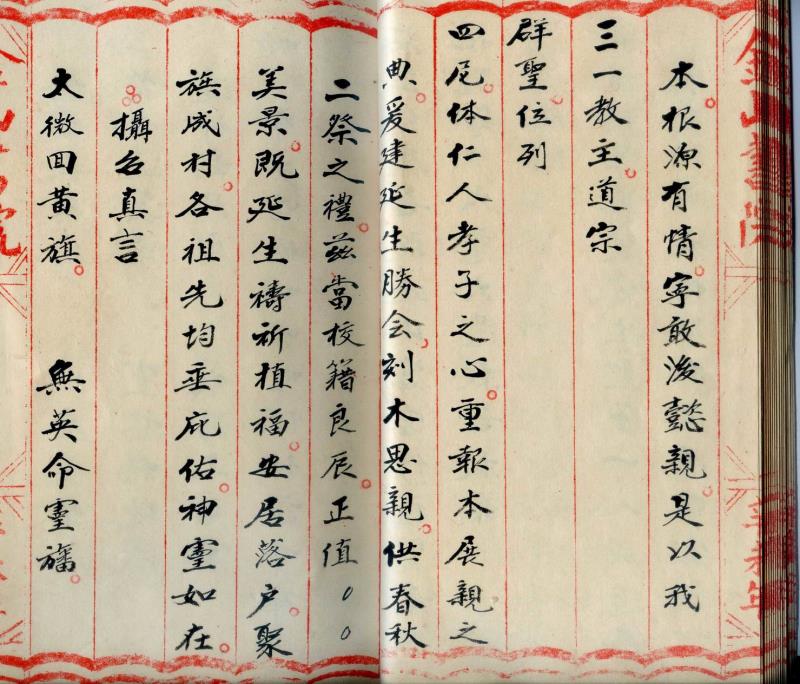 本根源有情寧敢後懿親是以我
三一教主道宗
群聖位列
四尼体仁人孝子之心重報本展親之
典爰建延生勝会刻木思親供春秋
二祭之禮茲當校籍良辰正值〇〇
美景既延生禱祈植福安居落户聚
旗成村各祖先均垂庇佑神靈如在
攝召真言
太微回黄旗 無英命靈旛